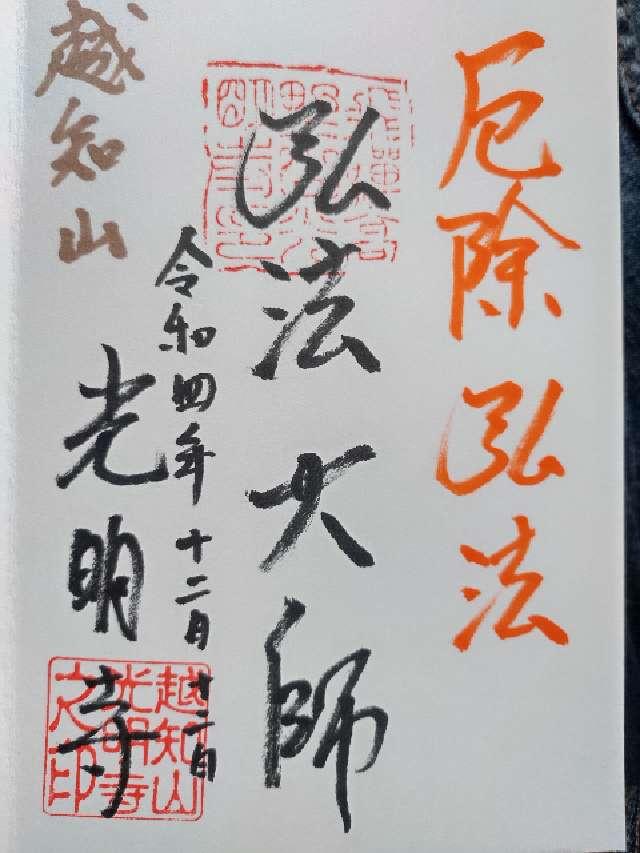 厄除弘法
弘法大師
令和四年十二月十二日
越知山
光明寺
越知山
光明寺
之印